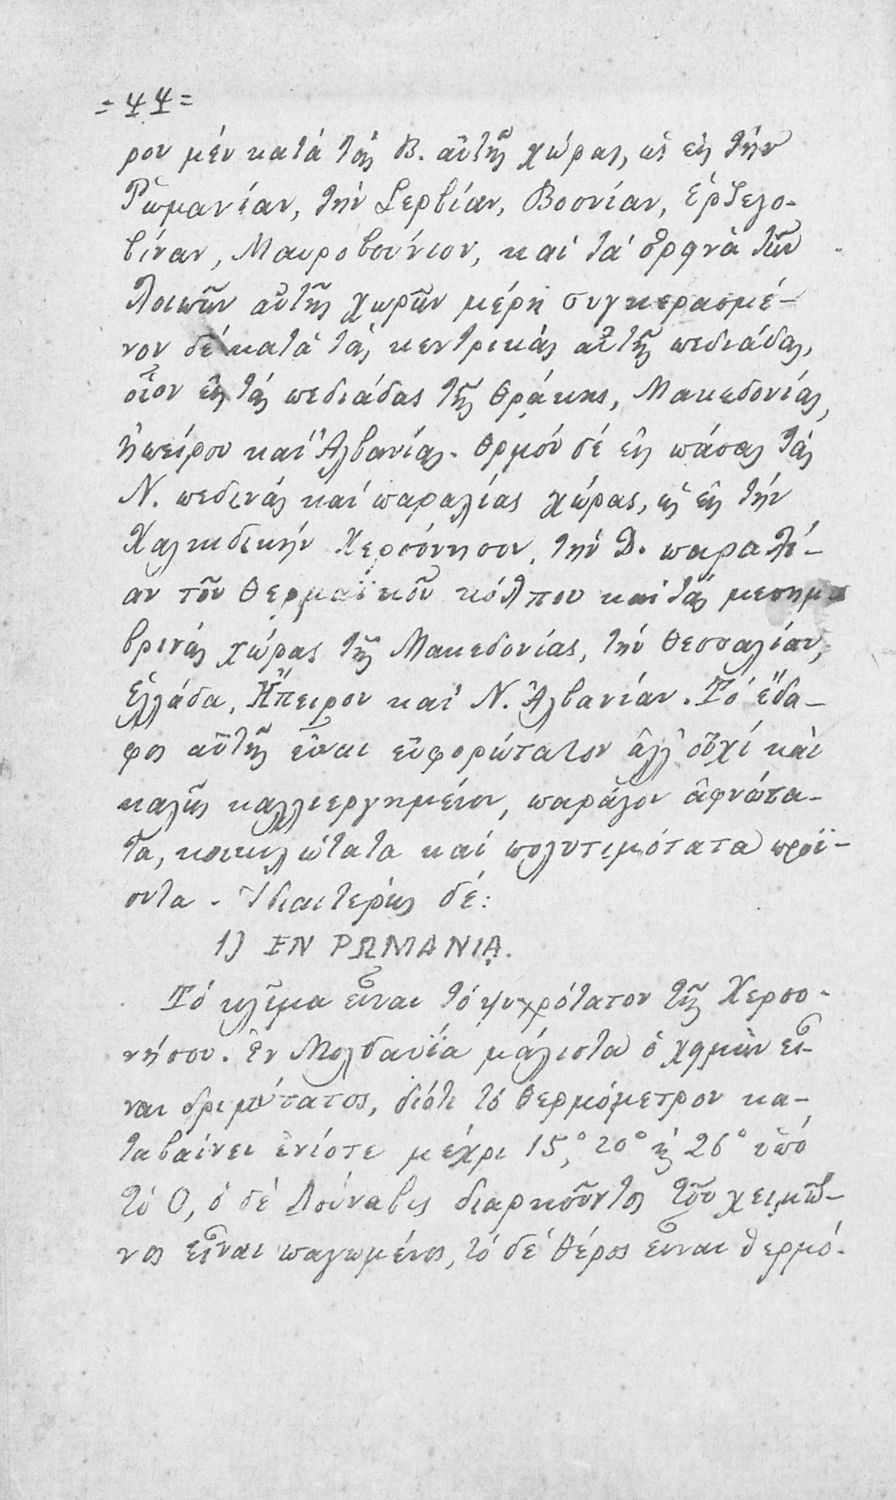 = 44 =
ρον μέν κατά τάς Β. αὐτῆς χώρας, ὡς εἰς τήν
Ῥωμανίαν, τήν Σερβίαν, Βοσνίαν, Ἑρζεγο-
βίναν, Μαυροβούνιον, καί τά ὀρεινὰ τῶν
λοιπῶν αὐτῆς χωρῶν μέρη συγκερασμέ-
νον δέ κατά τάς κεντρικάς αὐτῆς πεδιάδας,
οἷον εἰς τάς πεδιάδας τῆς Θράκης, Μακεδονίας,
Ἠπείρου καί Ἀλβανίας. Θερμόν δέ εἰς πάσας τάς
Ν. πεδινάς καί παραλίας χώρας, ὡς εἰς τήν
Χαλκιδικήν Χερσόνησον, τήν Δ. παραλί-
αν τοῦ Θερμαϊκοῦ κόλπου καί τάς μεσημ
βρινάς χώρας τῆς Μακεδονίας, τήν Θεσσαλίαν,
Ἑλλάδα, Ἤπειρον καί Ν. Ἀλβανίαν. Τό ἔδα-
φος αὐτῆς εἶναι εὐφορώτατον ἀλλ' οὐχί καί
καλῶς καλλιεργημένον, παράγον ἀφνώτα-
τα, ποικιλώτατα καί πολυτιμότατα προϊ-
όντα. Ἰδιαιτέρως δέ:
1) ΕΝ ΡΩΜΑΝΙΑ.
Τό κλῖμα εἶναι τό ψυχρότατον τῆς Χερσο-
νήσου. Ἐν Μολδαυΐα μάλιστα ὁ χειμών εἶ-
ναι δριμύτατος, διότι τό θερμόμετρον κα-
ταβαίνει ἐνίοτε μέχρι 15,° 20° ἤ 26° ὑπό
τό 0, ὁ δέ Δούναβις διαρκοῦντος τοῦ χειμῶ-
νος εἶναι παγωμένος, τό δέ θέρος εἶναι θερμό-